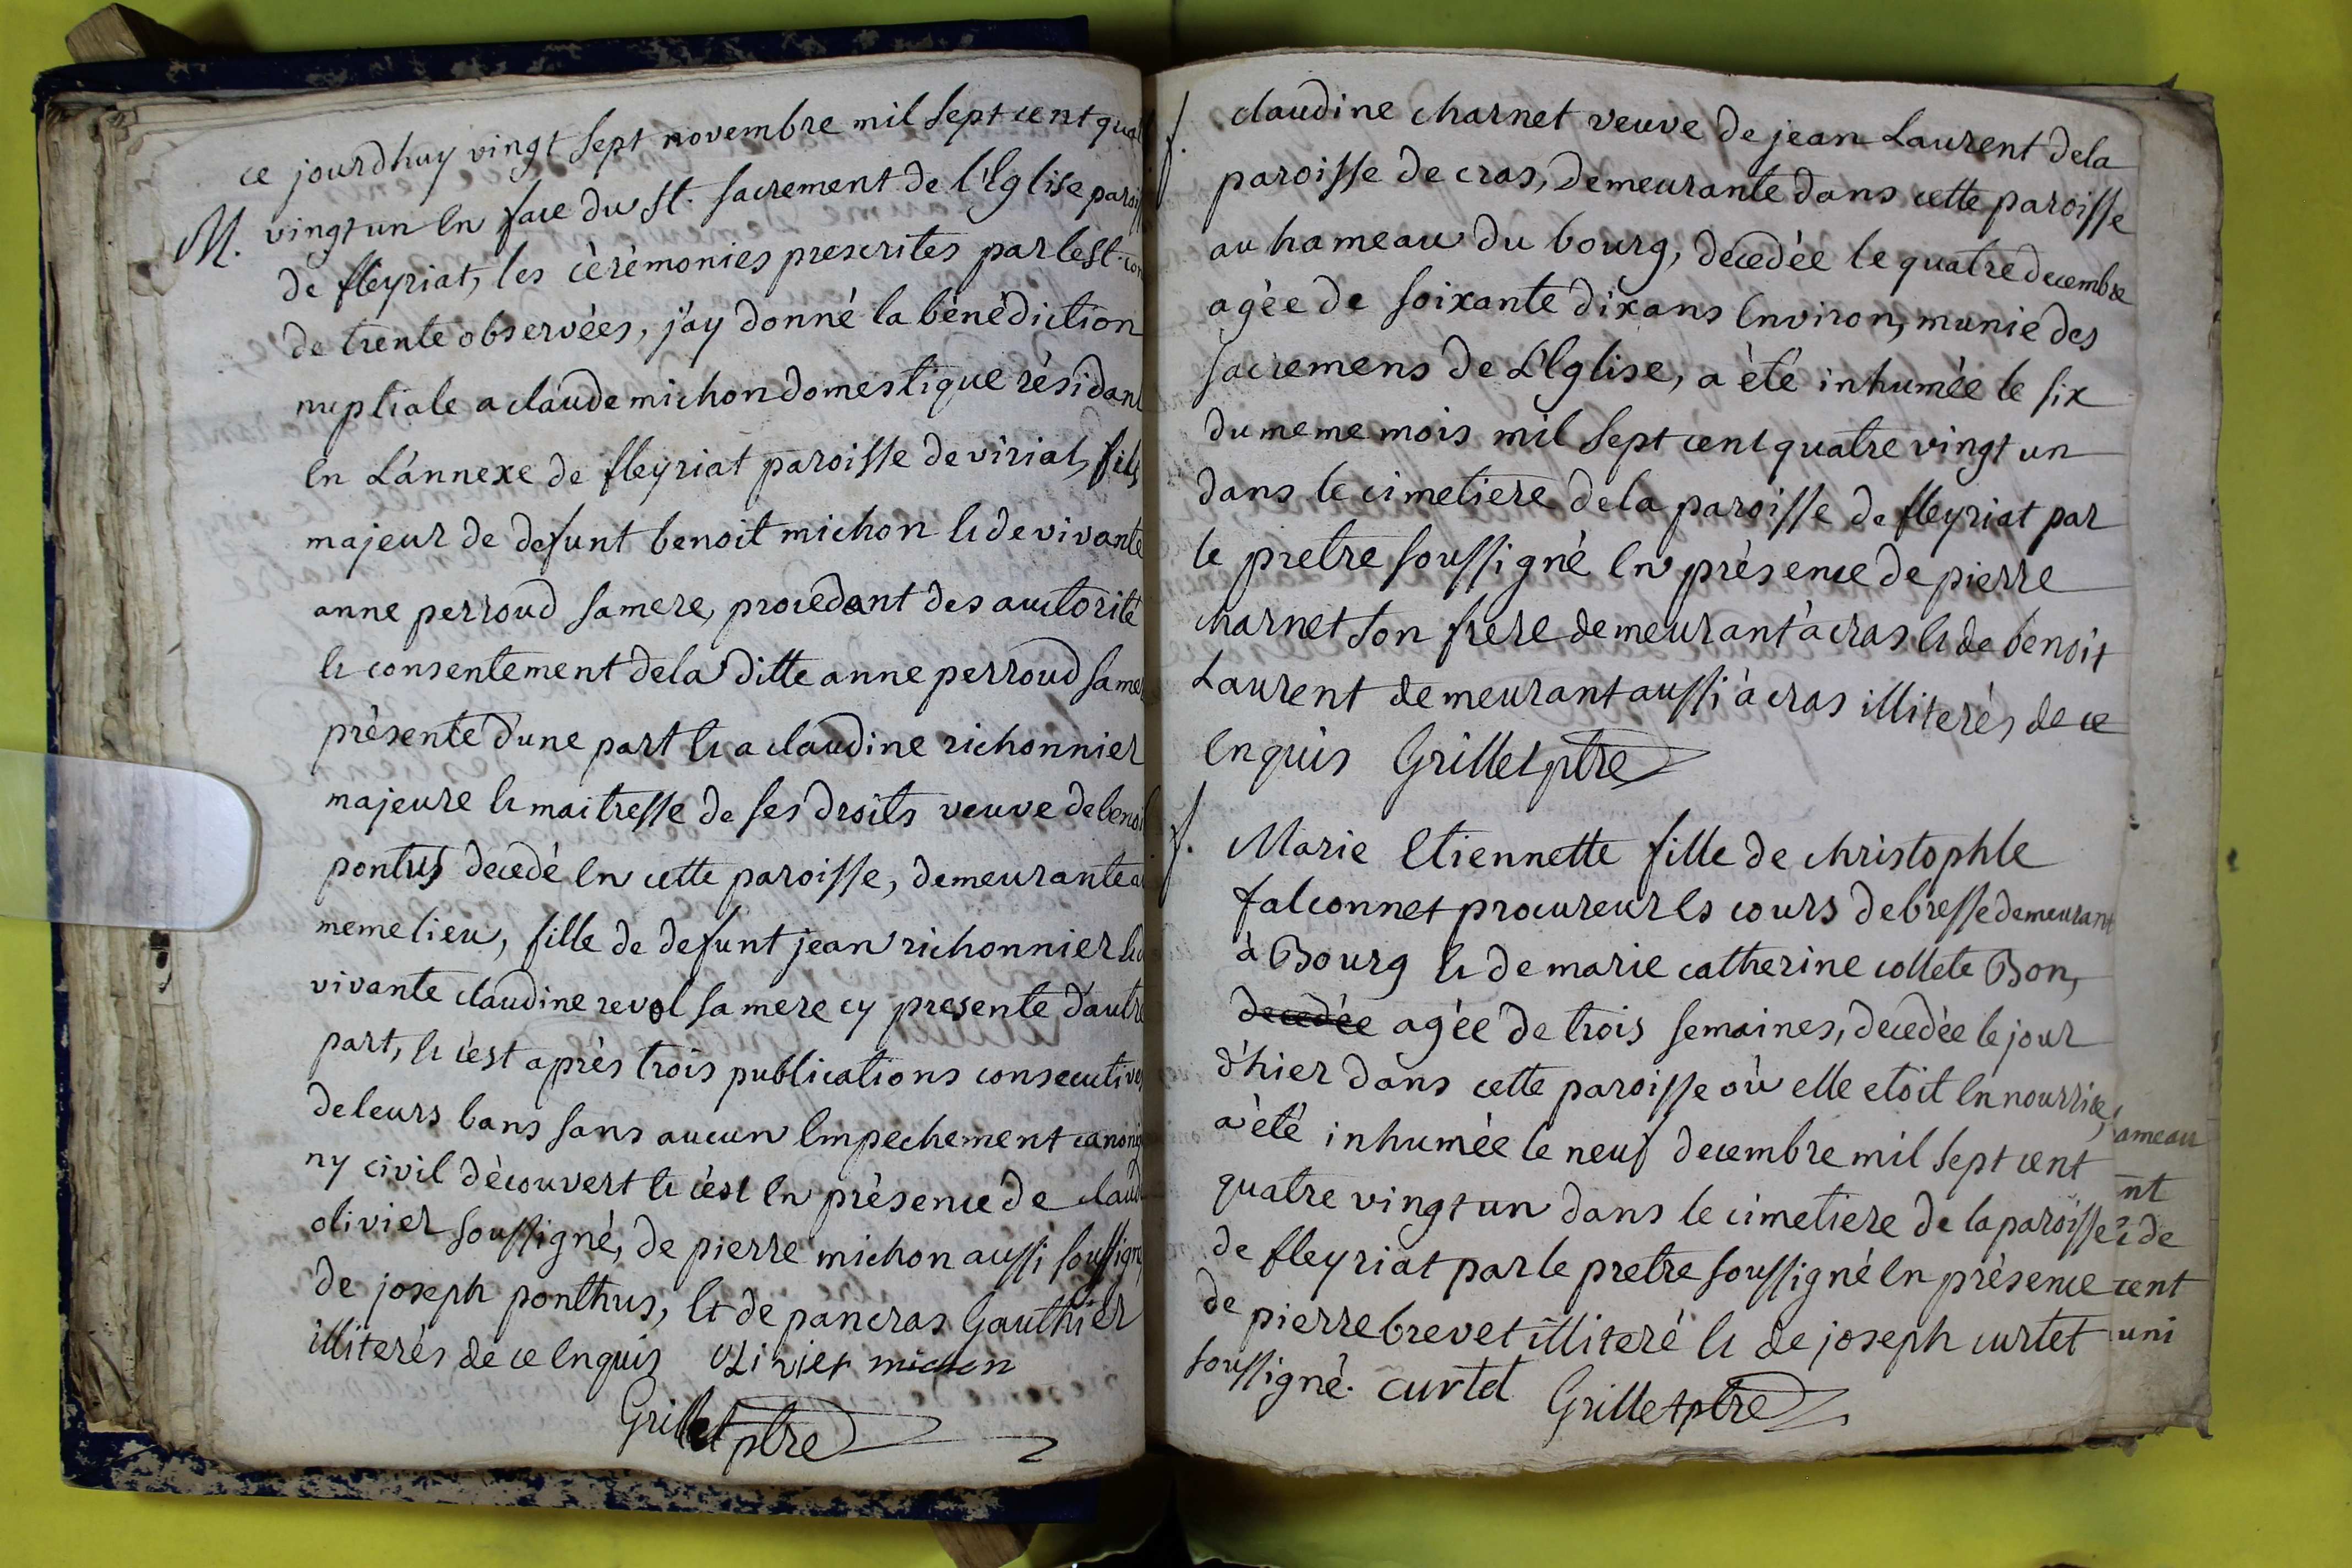 ce jourdhuy vingt sept novembre mil sept cent quat
M. vingt un en face du st. sacrement de l'Eglise paroiss
de fleyriat, les cèrèmonies prescrites par le st. con
de trente observèes, j'ay donné la bènèdiction
nuptiale a claude michon domestique rèsidant
en L'annexe de fleyriat paroisse de viriat, fils
majeur de defunt benoit michon et de vivante
anne perroud sa mere, procedant des auctorité
et consentement de la ditte anne perroud sa mere
prèsente d'une part et a claudine richonnier
majeure et maitresse de ses droits veuve de benoit
pontus decedè en cette paroisse, demeurante a
meme lieu, fille de defunt jean richonnier et d
vivante claudine revol sa mere cy presente d'autre
part, et c'est après trois publications consecutives
de leurs bans sans aucun empechement canoniq
ny civil dècouvert et c'est en prèsence de claude
olivier soussigné, de pierre michon aussi soussigné
de joseph ponthus, et de pancras Gauthier
illiterès de ce enquis OLivier michon
Grillet ptre
f. claudine charnet veuve de jean Laurent de la
paroisse de cras, demeurante dans cette paroisse
au hameau du bourg, decedèe le quatre decembre
agèe de soixante dix ans environ, munie des
sacremens de L'Eglise, a èté inhumèe le six
du meme mois mil sept cent quatre vingt un
dans le cimetiere de la paroisse de fleyriat par
le pretre soussigné en prèsence de pierre
charnet son frere demeurant à cras et de benoit
Laurent demeurant aussi à cras illiterès de ce
enquis Grillet ptre
f. Marie Etiennette fille de christophle
falconnet procureur es cours de bresse demeurant
à Bourg et de marie catherine collete Bon,
decedèe agèe de trois semaines, decedèe le jour
d'hier dans cette paroisse où elle etoit en nourrice,
a èté inhumèe le neuf decembre mil sept cent
quatre vingt un dans le cimetiere de la paroisse
de fleyriat par le pretre soussigné en prèsence
de pierre brevet illiterè et de joseph curtet
soussigné. curtet Grillet ptre
ameau
nt
de
cent
uni